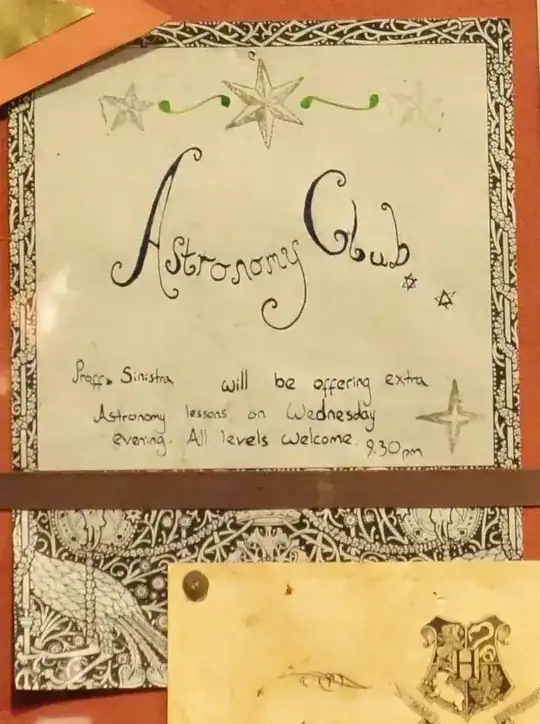 Astronomy Club
Proff. Sinistra will be offering extra
Astronomy lessons on Wednesday
evening. All levels welcome. 9.30pm
H